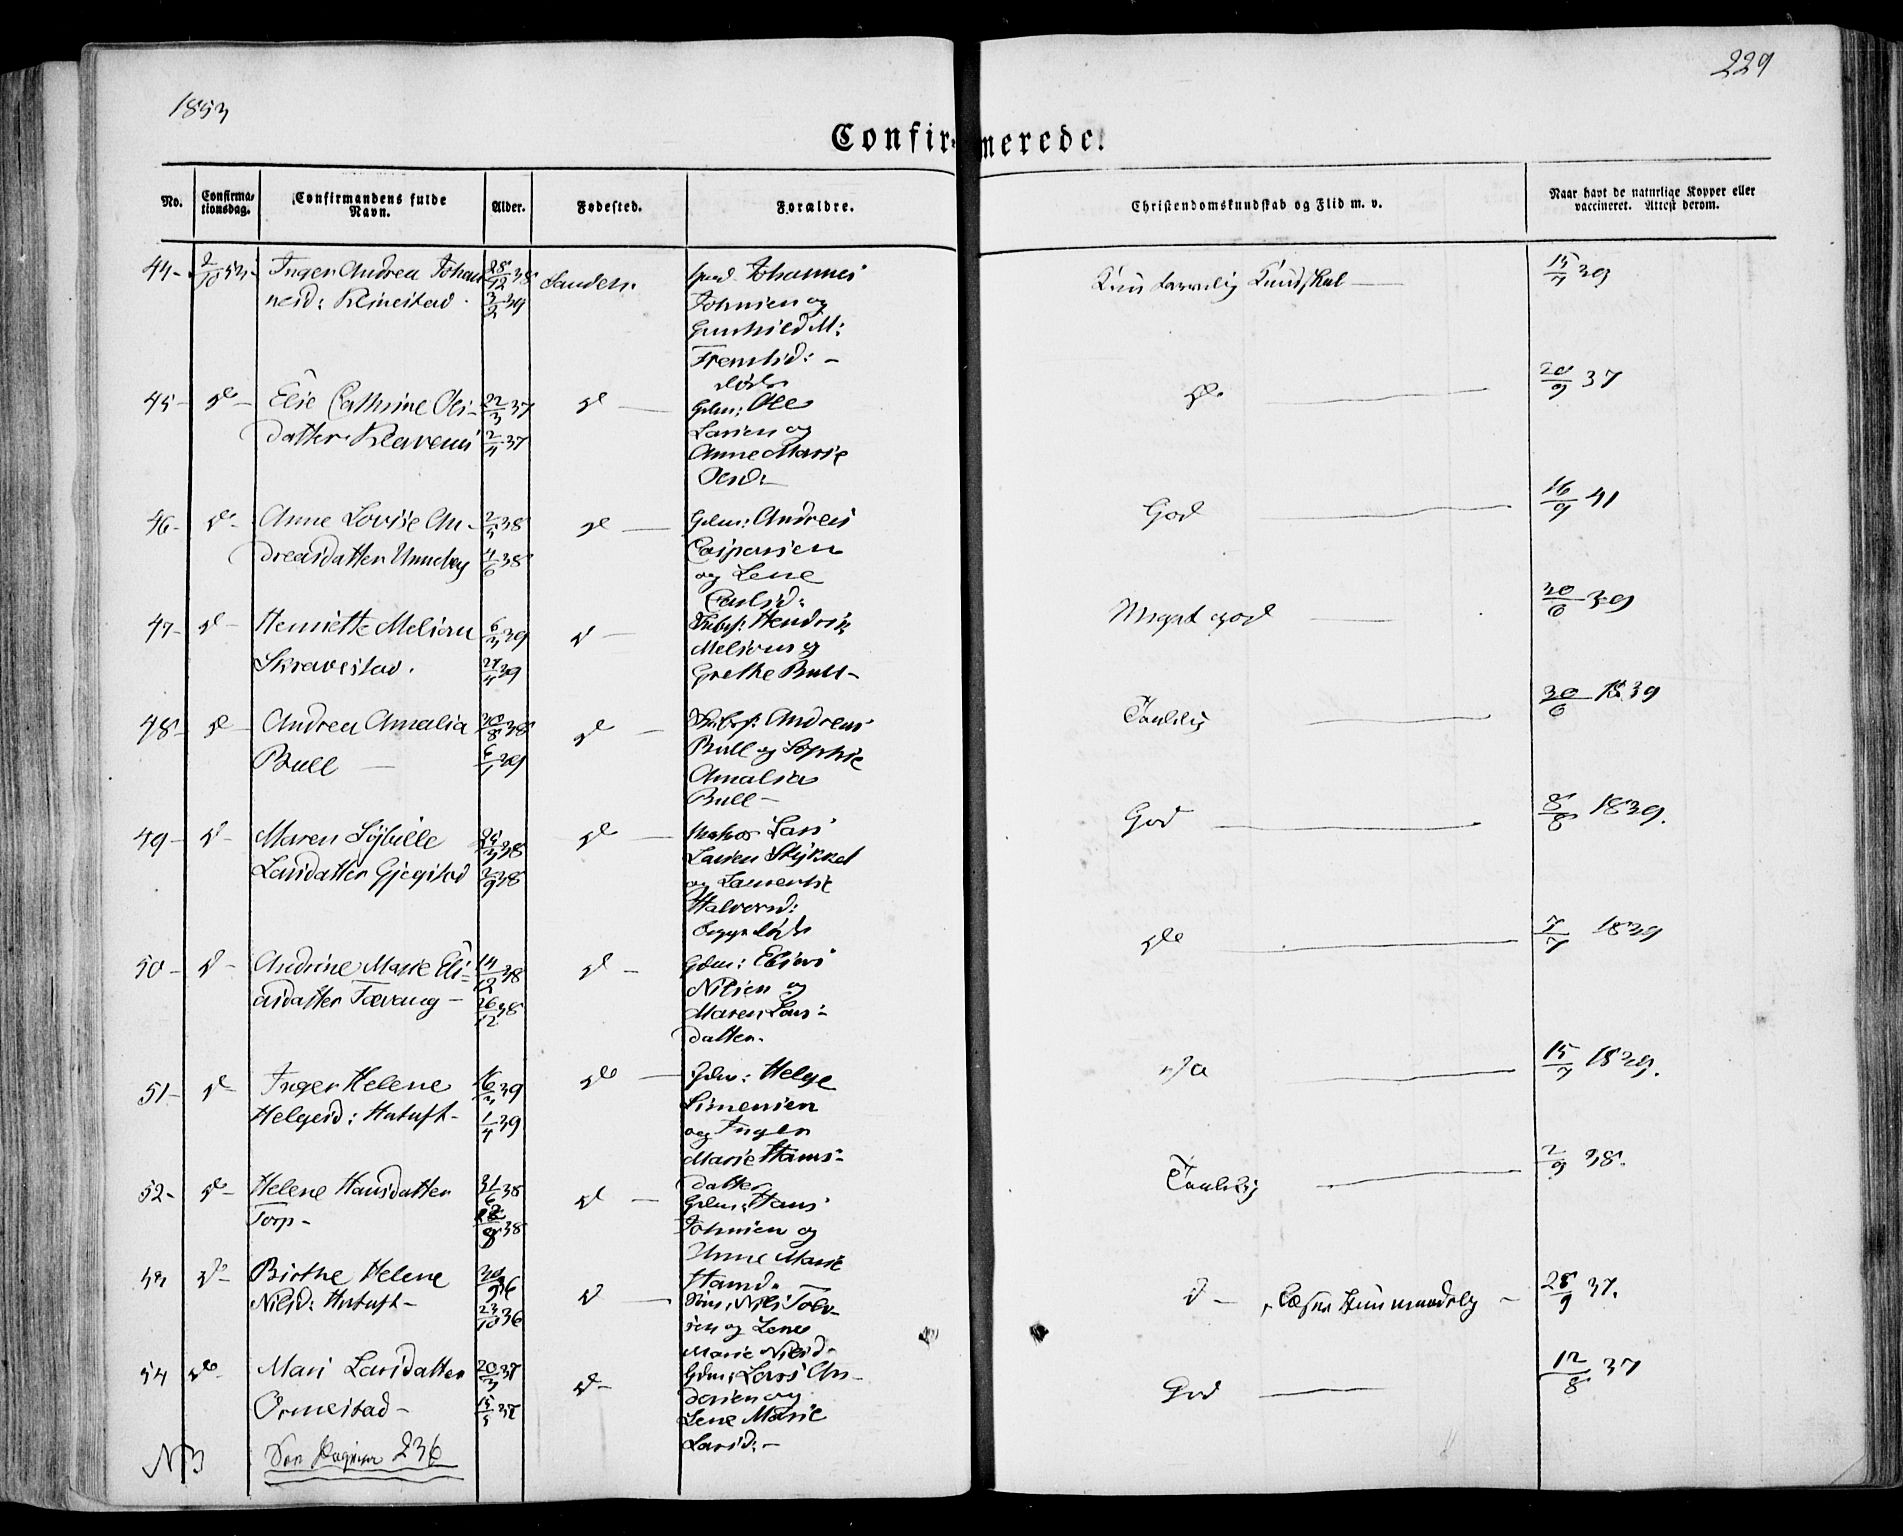 1853
229
Confirmerede.
No.
Confirmationsdag.
Confirmandens fulde Navn.
Alder.
Fødested.
Forældre.
Christendomskundskab og Flid m. v.
Naar havt de naturlige Kopper eller vaccineret. Attest derom.
44- 2/10 53- Inger Andrea Johan 28/12 38 Sandeh: Johannes 15/7 39
nesd: Klinestad. 3/2 39 Johnsen og
Gunhild M:
Fremtid: -
død
45- do- Elie Cathrine Ols- 22/3 37 do Gdm: Ole do 20/9 37
datter Klavenes 2/4 37 Larsen og
Anne Marie
Olsd:
46- do- Anne Lovise An- 2/5 38 do Gdm: Andreas God 16/9 41
dreasdatter Unneberg 4/6 38 Caspersen
og Lene
Carlsd:
47- do- Henriette Melsom 6/3 39 do- Hendrik Meget god 30/6 39
Skravestad. 27/4 39 Melsom og
Grethe Bull-
48- do- Andrea Amalia 30/8 38 do Andreas Taalelig 30/6 1839
Bull 6/1 39 Bull og Sophie
Amalia
Bull-
49- do- Maren Sybille 25/7 38 do Lars God 8/8 1839.
Larsdatter Gjegstad 2/9 38 Larsen Stykket
og Lamertie
Halvorsd:
begge døde
50- do- Andrine Marie Eli- 14/12 38 do- Gdm: Elias do 7/7 1839
asdatter Fævang- 26/12 38 Nilsen og
Maren Lars-
datter.
51- do Inger Helene 16/3 39 do Gdm: Helge 15/7 1839.
Helgesd: Hatuft- 1/4 39 Simensen
og Inger
Marie Hans-
datter
52- do- Helene Hansdatter 31/6 38 do Gdm: Hans Taalelig 2/9 38.
Torp- 12/8 38 Johnsen og
Anne Marie
Hansd.
53 do- Birthe Helene 30/9 36 do Nils Tolv- do- Læser 28/9 37.
Nilsd: Hatuft- 23/10 36 sen og Lene
Marie Nilsd-
54 do- Mari Larsdatter 20/3 37 do- Gdm: Lars An- God 12/8 37
Ormestad- 15/5 37 dersen og
Lene Marie
Larsd:-
NB See Pagina 236